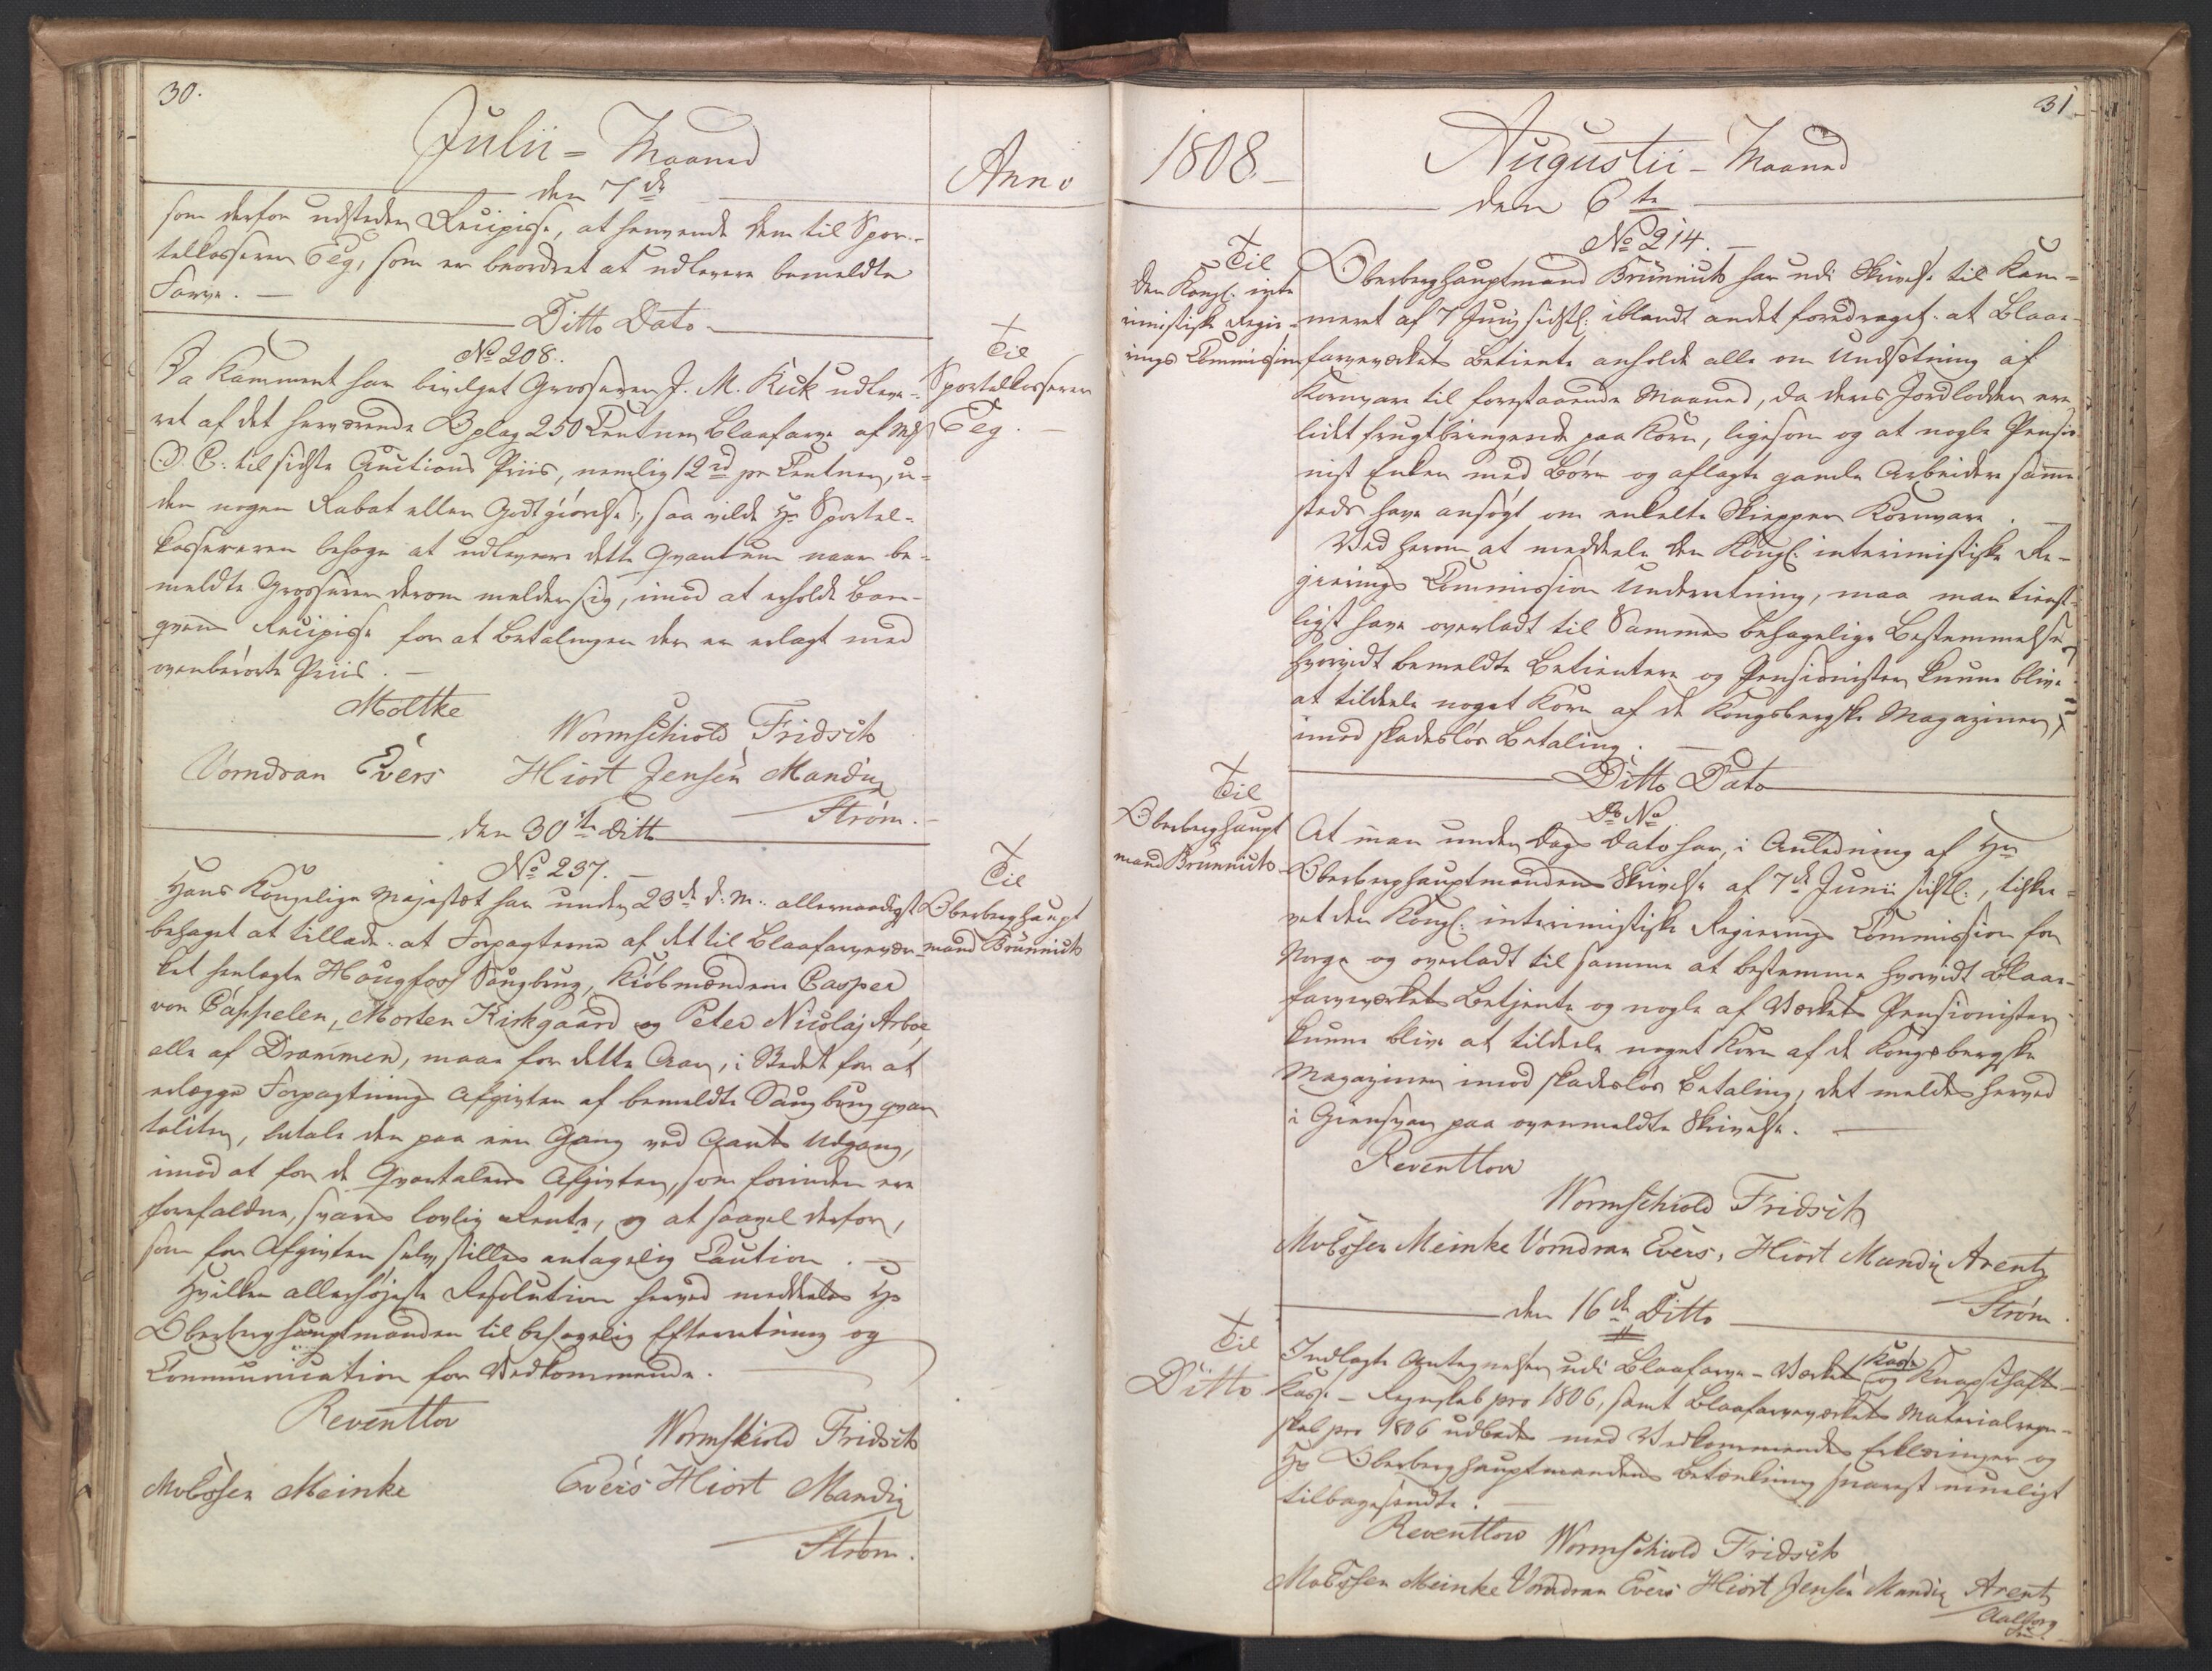 30.
Julii = Maaned
Anno
den 7de
som derfor udsteder Recipisse, at henvende dem til Spor-
telkasserer Eeg, som er beordret at udlevere bemeldte
Farve. —
Ditto Dato
No 208.
Til
Sportelkasserer
Eeg. —
Da Kammeret har bevilget Grosserer J. M. Keck udleve-
ret af det herværende Oplag 250 Centner Blaafarve af
O. C. til sidste Auctions Priis, nemlig 12 rd pr Centner, u-
den nogen Rabat eller Godtgiørelse; saa vilde Hr Sportel-
kassereren behage at udlevere dette Qvantum naar be-
meldte Grosserer derom melder sig, imod at erholde
Recipisse for at Betalingen der er erlagt med
ovenberørte Priis. —
Moltke
Wormschiold Fridsch
Vorndran Evers Hiort Jensen Mandix
Strøm.
den 30te Ditto
No 237. —
Til
Oberberghaupt
mand Brünnich
Hans Kongelige Majestæt har under 23de d. M. allernaadigst
behaget at tillade: at Forpagterne af det til Blaafarvevær-
ket henlagte Hougfos Saugbrug, Kiøbmændene Casper
von Cappelen, Morten Kirkgaard og Peter Nicolaj Arboe
alle af Drammen, maae for dette Aar, i Stedet for at
erlægge Forpagtnings Afgivten af bemeldte Saugbrug qvar
taliter, betale den paa een Gang ved Aarets Udgang,
imod at for de Qvartalers Afgivter, som forinden ere
forefaldne, svares lovlig Rente, og at saavel derfor,
som for Afgivten selv stilles antagelig Caution. —
Hvilken allerhøjeste Resolution herved meddeles Hr
Oberberghauptmanden til behagelig Efterretning og
Communication for Vedkommende.
Reventlow
Wormskiold Fridsch
Meinke Evers Hiort Mandix
Strøm.
31
1808 —
Augustii — Maaned
den 6te
No 214. —
Til
den Kongl: inte
rimistiske Regie-
rings Commission
Oberberghauptmand Brünnich har udi Skrivelse til Kam-
meret af 7 Junij sidstl: iblandt andet foredraget: at Blaae-
farveværkets Betiente anholde alle om Undsætning af
Kornvare til forestaaende Maaned, da deres Jordlodder ere
lidet frugtbringende paa Korn, ligesom og at nogle Pensio
nist Enker med Børn og aflagte gamle Arbeidere samme
steds have ansøgt om enkelte Skiepper Kornvare. —
Ved herom at meddele den Kongl: interimistiske Re-
gierings Commission Underretning, maa man tienst-
ligst have overladt til Sammes behagelige Bestemmelse,
hvorvidt bemeldte Betientere og Pensionister kunne blive
at tildele noget Korn af de Kongsbergske Magaziner,
imod skadesløs Betaling. —
Ditto Dato
Do No
Til
Oberberghaupt
mand Brünnich
At man under Dags Dato har, i Anledning af Hr
Oberberghauptmandens Skrivelse af 7de Junii sidstl:, tilskre-
vet den Kongl: interimistiske Regierings Commission for
Norge og overladt til samme at bestemme hvorvidt Blaae-
farveværkets Betjente og nogle af Værkets Pensionister
kunne blive at tildele noget Korn af de Kongsbergske
Magaziner imod skadesløs Betaling, det meldes herved
i Giensvar paa ovenmeldte Skrivelse. —
Reventlow
Wormschiold Fridsch
Meinke Vorndran Evers, Hiort Mandix Arentz
Strøm.
den 16de Ditto
Til
Ditto
Indlagte Antegnelser udi Blaafarve-Værkets Kasse og Knapschafts-
Kasse-Regnskab pro 1806, samt Blaafarveværkets Materialregn-
skab pro 1806 udbedes med Vedkommendes Erklæringer og
Hr Oberberghauptmandens Betænkning snarest mueligst
tilbagesendte. —
Reventlow Wormschiold Fridsch
Meinke Vorndran Evers Hiort Jensen Mandix Arentz
Aalborg